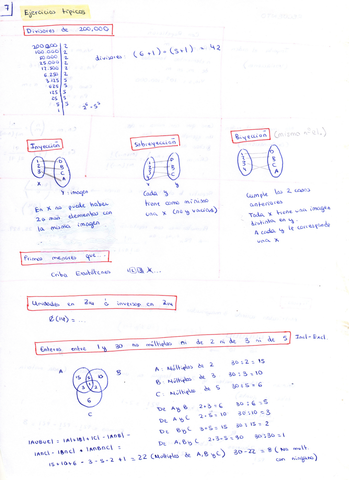 7
Ejercicios típicos
Divisores de 200,000
200.000 | 2
100.000 | 2
50.000 | 2
25.000 | 2
12.500 | 2
6.250 | 2
3.125 | 5
625 | 5
125 | 5
25 | 5
5 | 5
1
2⁶ · 5⁵
divisores (6+1) · (5+1) = 42
Inyección
Sobreyección
Biyección (mismo nº el.)
x y imagen
En X no puede haber
2 o más elementos con
la misma imagen
x y
Cada y
tiene como mínimo
una x (no y vacías)
Cumple los 2 casos
anteriores
Toda x tiene una imagen
distinta en y.
A cada y le corresponde
una x
Primos menores que...
Criba Eratóstenes
Unidades en
ó inversos en
Enteros entre 1 y 30 no múltiplos ni de 2 ni de 3 ni de 5 Incl-Excl.
A B C
A: Múltiplos de 2 30:2 = 15
B: Múltiplos de 3 30:3 = 10
C: Múltiplos de 5 30:5 = 6
De A y B 2·3=6 30:6=5
De A y C 2·5=10 30:10=3
De B y C 3·5=15 30:15=2
De A, B y C 2·3·5=30 30:30=1
|AUBUC| = |A|+|B|+|C| - |A∩B| -
|A∩C| - |B∩C| + |A∩B∩C| =
15+10+6-3-5-2+1 = 22 (Múltiplos de A, B y C) 30-22 = 8 (No mult.
con ninguno)